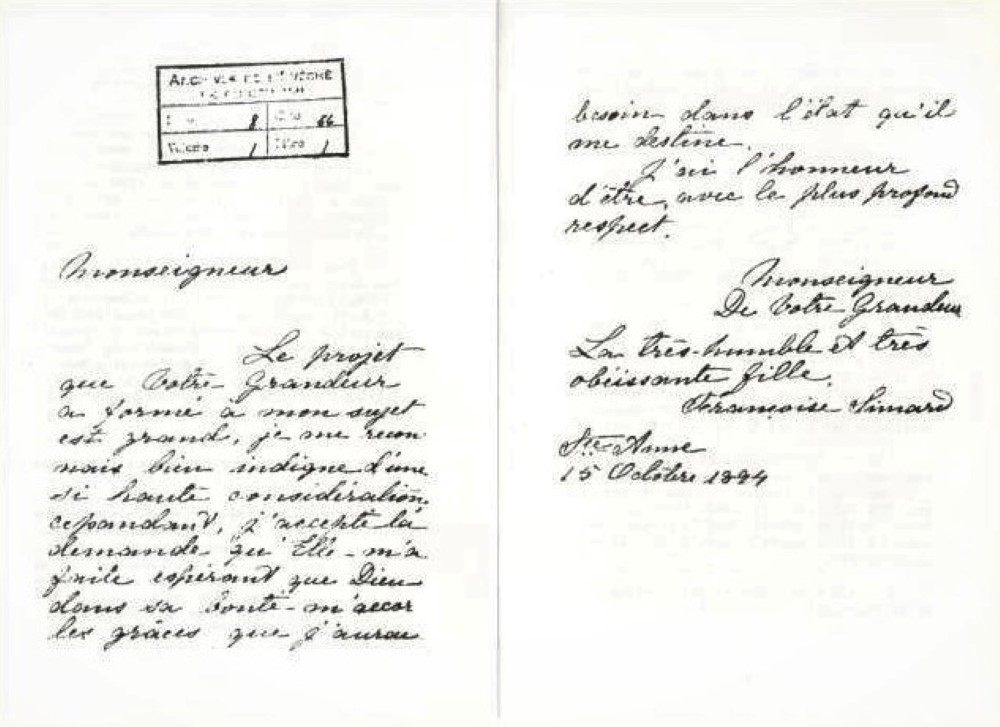 ARCHIVES DE L'ÉVÊCHÉ
8 66
Volume 1 Pièce 1
Monseigneur
Le projet
que Votre Grandeur
a formé à mon sujet
est grand, je me recon
nais bien indigne d'une
si haute considération,
cependant, j'accepte la
demande qu'Elle m'a
faite espérant que Dieu
dans sa bonté m'accor
les grâces que j'aurai
besoin dans l'état qu'il
me destine.
J'ai l'honneur
d'être, avec le plus profond
respect.
Monseigneur
De Votre Grandeur
La très-humble et très
obéissante fille,
Françoise Simard
Ste-Anne
15 Octobre 1894